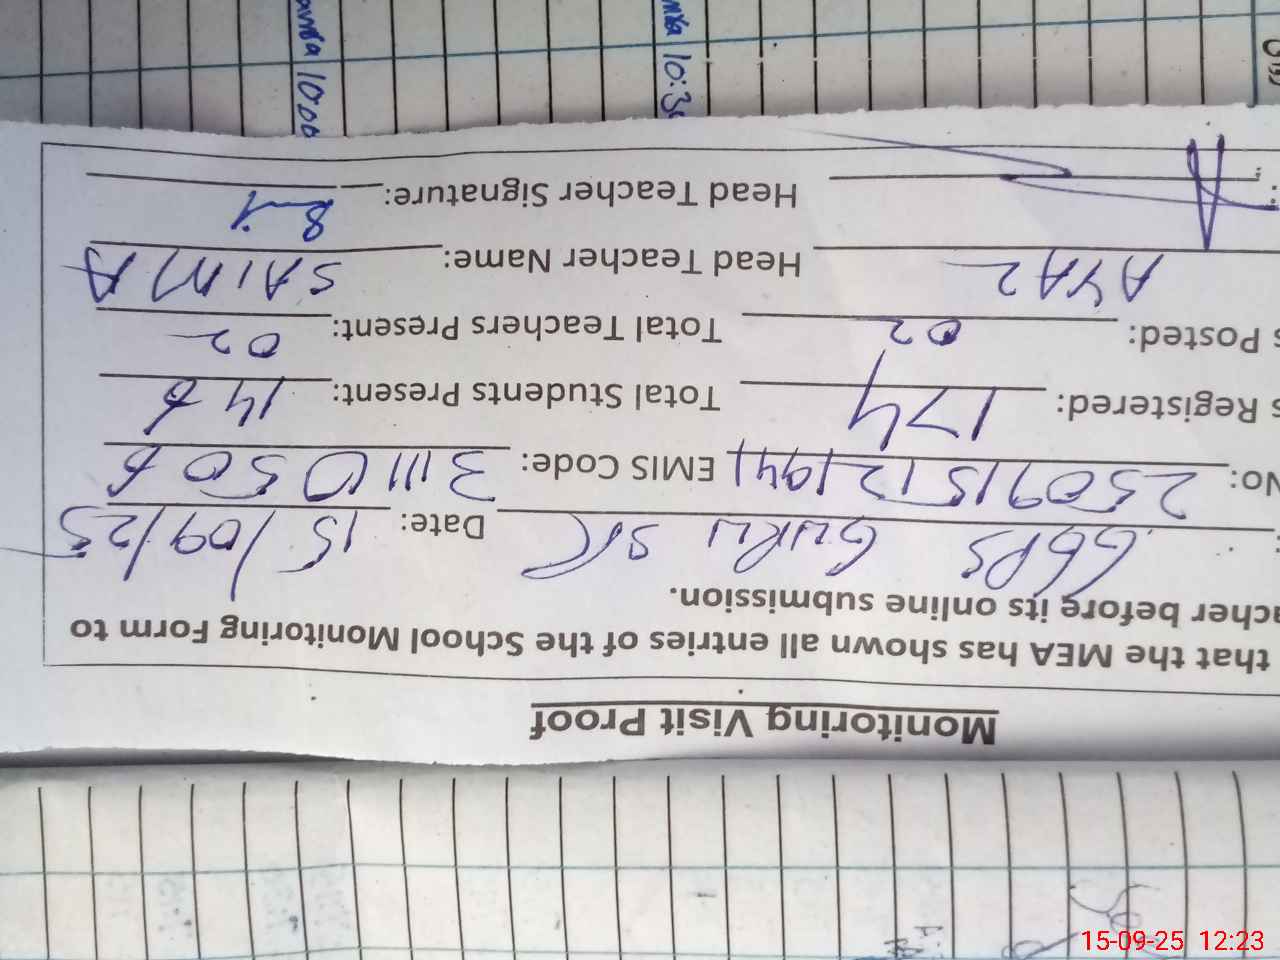 Monitoring Visit Proof
that the MEA has shown all entries of the School Monitoring Form to
cher before its online submission.
GGPS GURU Date: 15/09/25
No: 250915121941 EMIS Code: 31110506
s Registered: 174 Total Students Present: 146
s Posted: 02 Total Teachers Present: 02
AYAZ Head Teacher Name: SAIMA
Head Teacher Signature:
10:30
1000
15-09-25 12:23